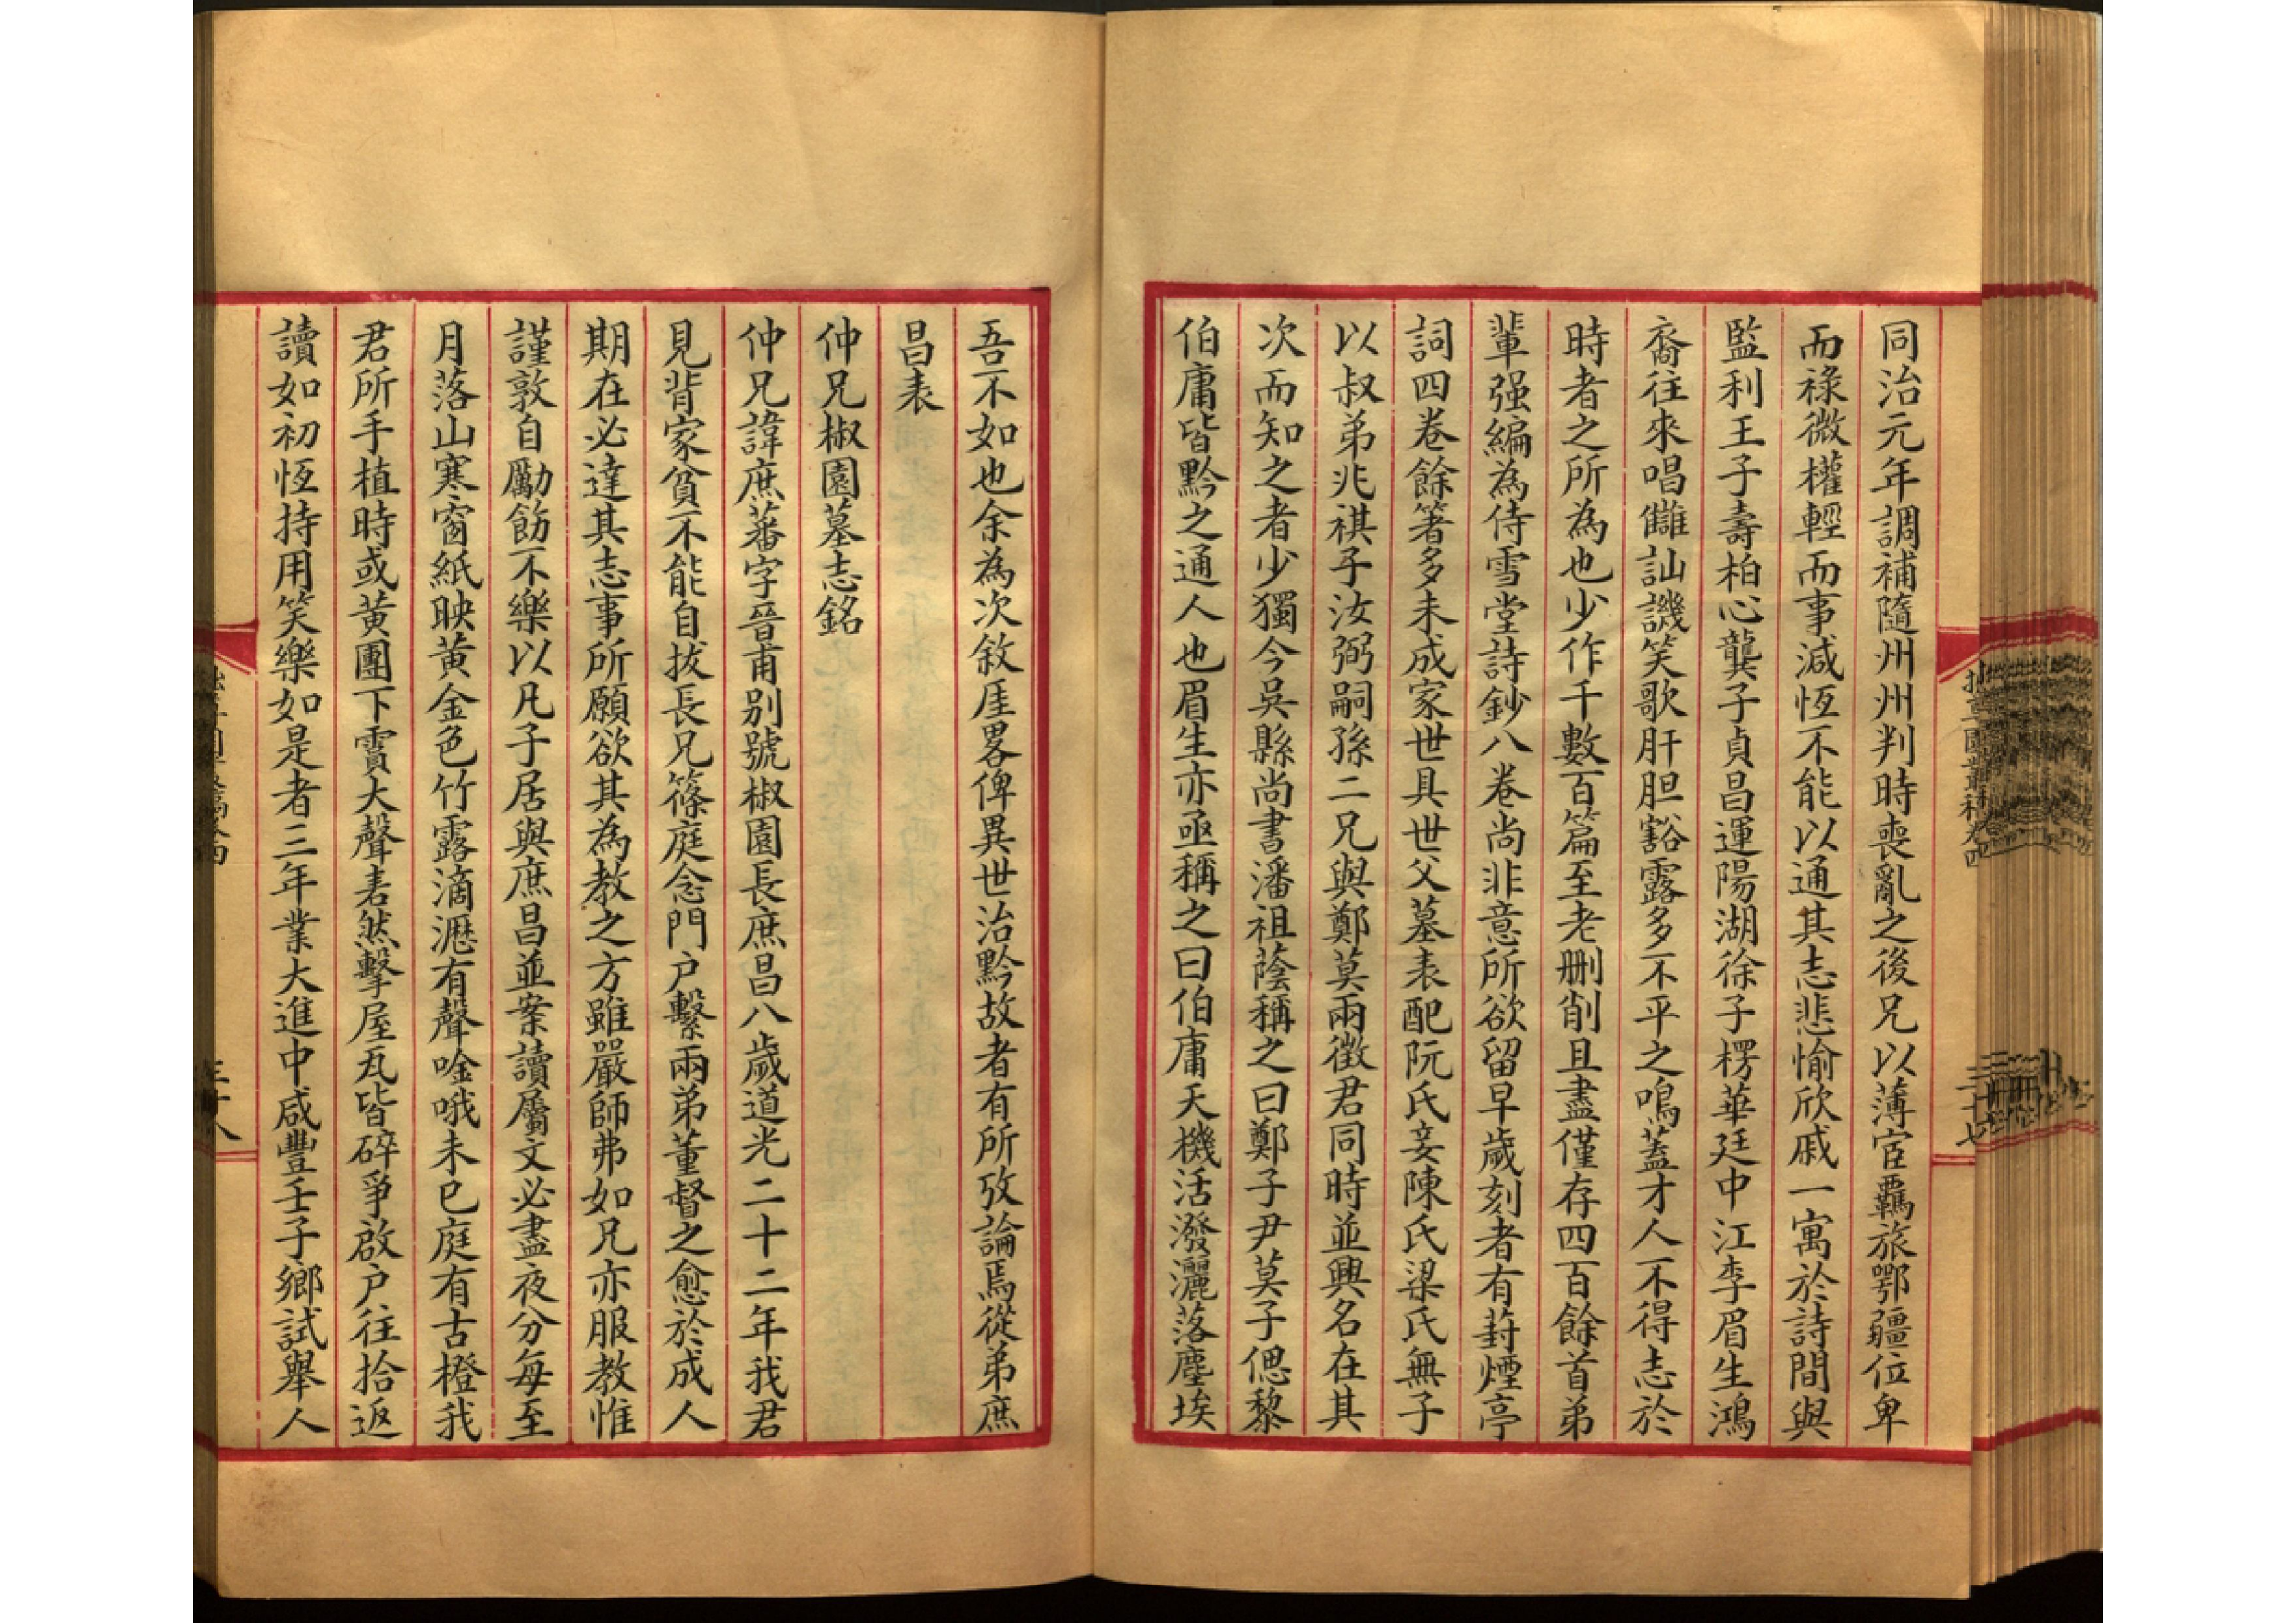 同治元年調補隨州州判時喪亂之後兄以薄宦羈旅鄂疆位卑
而祿微權輕而事減恆不能以通其志悲愉欣戚一寓於詩間與
監利王子壽柏心龔子貞昌運陽湖徐子楞華廷中江李眉生鴻
裔往來唱讎訕譏笑歌肝胆豁露多不平之鳴蓋才人不得志於
時者之所為也少作千數百篇至老刪削且盡僅存四百餘首弟
輩强編為侍雪堂詩鈔八卷尚非意所欲留早歲刻者有葑煙亭
詞四卷餘箸多未成家世具世父墓表配阮氏妾陳氏梁氏無子
以叔弟兆祺子汝弼嗣孫二兄與鄭莫兩徵君同時並興名在其
次而知之者少獨今吳縣尚書潘祖蔭稱之曰鄭子尹莫子偲黎
伯庸皆黔之通人也眉生亦亟稱之曰伯庸天機活潑灑落塵埃
吾不如也余為次敘厓畧俾異世治黔故者有所攷論焉從弟庶
昌表
仲兄椒園墓志銘
仲兄諱庶蕃字晉甫別號椒園長庶昌八歲道光二十二年我君
見背家貧不能自拔長兄篠庭念門户繫兩弟董督之愈於成人
期在必達其志事所願欲其為教之方雖嚴師弗如兄亦服教惟
謹敦自勵飭不樂以凡子居與庶昌並案讀屬文必盡夜分每至
月落山寒窗紙映黃金色竹露滴瀝有聲唫哦未已庭有古橙我
君所手植時或黃團下賈大聲砉然擊屋瓦皆碎爭啟户往拾返
讀如初恆持用笑樂如是者三年業大進中咸豐壬子鄉試舉人